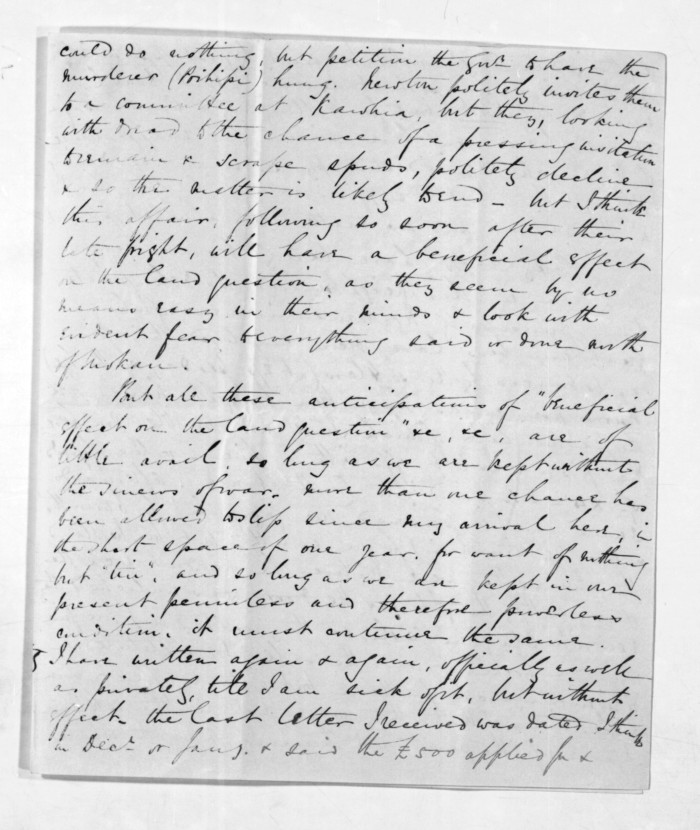 could do nothing, but petition the Govt to have the
murderer (Poihipi) hung. Newton politely invites them
to a committee at Kawhia, but they, looking
with dread to the chance of a pressing invitation
to remain & scrape spuds, politely decline
& so the matter is likely to end – but I think
this affair, following so soon after their
late fright, will have a beneficial effect
on the land question, as they seem by no
means easy in their minds & look with
evident fear to everything said or done north
of Mokau.
But all these anticipations of "beneficial
effect on the land question" &c, &c, are of
little avail so long as we are kept without
the sinews of war. more than one chance has
been allowed to slip since my arrival here, in
the short space of one year, for want of nothing
but "tin", and so long as we are kept in our
present penniless and therefore powerless
condition, it must continue the same.
I have written again & again, officially as well
as privately, till I am sick of it, but without
effect – the last letter I received was dated I think
in Decr. or Jany. & said the £500 applied for &